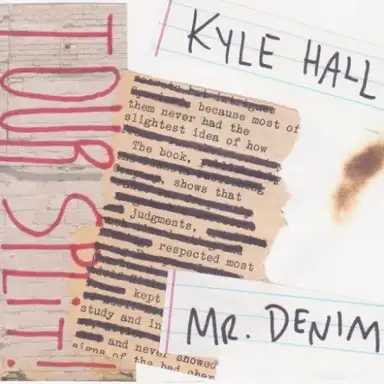 TOUR SPLiT!
KYLE HALL
because most of
them never had the
slightest idea of how
The book,
shows that
judgments,
respected most
kept
study and in
and never showed
signs of the bad char
MR. DENIM